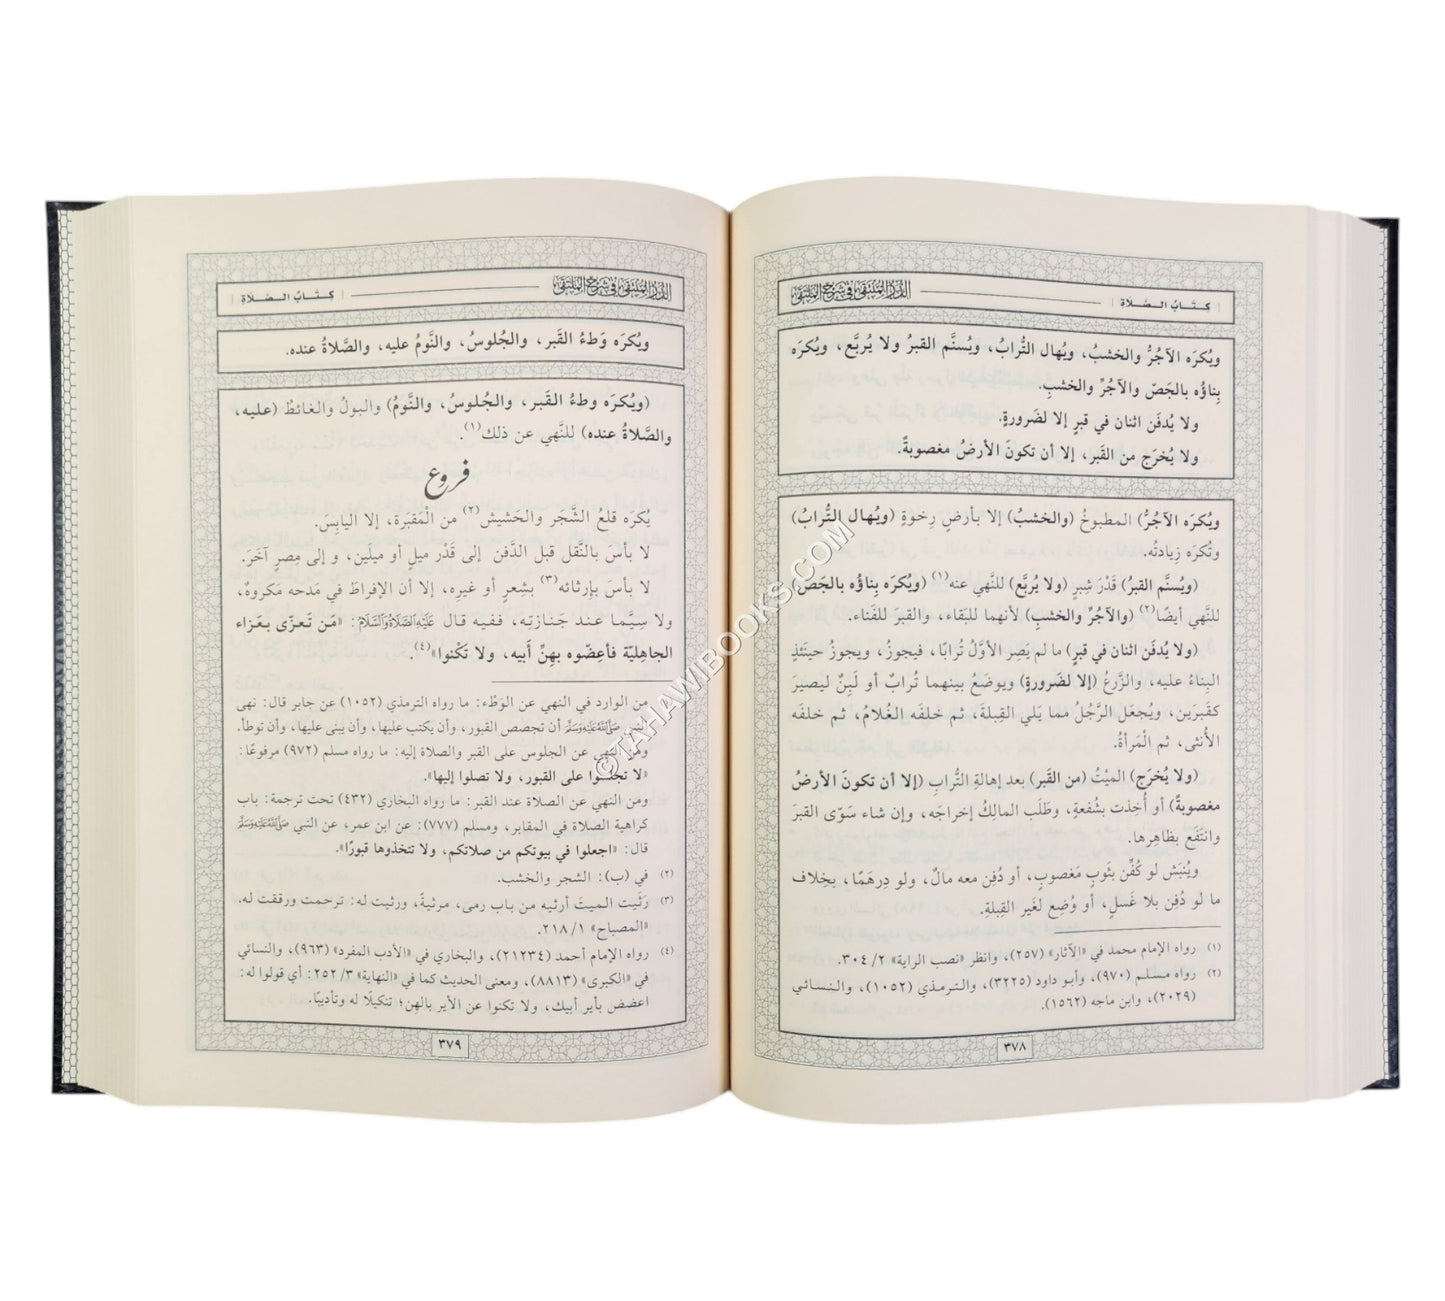 | كِتَابُ الـصَّلَاةِ | الدُّرُّ المُنتَقَى فِي شَرْحِ المُلْتَقَى
ويُكرَه الآجُرُّ والخشبُ، ويُهال التُّرابُ، ويُسنَّم القبرُ ولا يُربَّع، ويُكرَه
بِناؤُه بالجَصّ والآجُرِّ والخشبِ.
ولا يُدفَن اثنان في قبرٍ إلا لضَرورةٍ.
ولا يُخرَج من القَبر، إلا أن تكونَ الأرضُ مغصوبةً.
(ويُكرَه الآجُرُّ) المطبوخُ (والخشبُ) إلا بأرضٍ رِخوةٍ (ويُهال التُّرابُ)
وتُكرَه زِيادتُه.
(ويُسنَّم القبرُ) قَدْرَ شِبرٍ (ولا يُربَّع) للنَّهي عنه(١) (ويُكرَه بِناؤُه بالجَصّ)
للنَّهي أيضًا(٢) (والآجُرِّ والخشبِ) لأنهما للبَقاء، والقبرَ للفَناء.
(ولا يُدفَن اثنان في قبرٍ) ما لم يَصِر الأوَّلُ تُرابًا، فيجوزُ، ويجوزُ حينَئذٍ
البِناءُ عليه، والزَّرعُ (إلا لضَرورةٍ) ويوضَعُ بينهما تُرابٌ أو لَبِنٌ ليصيرَ
كقَبرَين، ويُجعَل الرَّجُلُ مما يَلي القِبلةَ، ثم خلفَه الغُلامُ، ثم خلفَه
الأُنثى، ثم المَرأةُ.
(ولا يُخرَج) الميْتُ (من القَبر) بعد إهالةِ التُّرابِ (إلا أن تكونَ الأرضُ
مغصوبةً) أو أُخِذت بشُفعةٍ، وطَلَب المالِكُ إخراجَه، وإن شاء سَوّى القبرَ
وانتَفَع بظاهِرها.
ويُنبَش لو كُفِّن بثَوبٍ مَغصوبٍ، أو دُفِن معه مالٌ، ولو دِرهَمًا، بخِلاف
ما لو دُفِن بلا غَسلٍ، أو وُضِع لغَير القِبلةِ.
(١) رواه الإمام محمد في «الآثار» (٢٥٧)، وانظر «نصب الراية» ٢/ ٣٠٤.
(٢) رواه مسلم (٩٧٠)، وأبو داود (٣٢٢٥)، والترمذي (١٠٥٢)، والنسائي
(٢٠٢٩)، وابن ماجه (١٥٦٢).
٣٧٨
الدُّرُّ المُنتَقَى فِي شَرْحِ المُلْتَقَى | كِتَابُ الـصَّلَاةِ |
ويُكرَه وَطءُ القَبر، والجُلوسُ، والنَّومُ عليه، والصَّلاةُ عنده.
(ويُكرَه وطءُ القَبر، والجُلوسُ، والنَّومُ) والبولُ والغائطُ (عليه،
والصَّلاةُ عنده) للنَّهي عن ذلك(١).
فروع
يُكرَه قلعُ الشَّجَر والحَشيش(٢) من الْمَقبَرة، إلا اليابِسَ.
لا بأسَ بالنَّقل قبل الدَّفن إلى قَدْر ميلٍ أو ميلَين، و إلى مِصرٍ آخَرَ.
لا بأسَ بإرثائه(٣) بشِعرٍ أو غيرِه، إلا أن الإفراطَ في مَدحه مَكروهٌ،
ولا سِيَّما عند جَنازتِه، ففيه قال عَلَيْهِ الصَّلَاةُ وَالسَّلَامُ: «مَن تَعزّى بعَزاء
الجاهِليّة فأَعِضّوه بهِنِّ أَبيه، ولا تَكْنوا»(٤).
(١) من الوارد في النهي عن الوَطْء: ما رواه الترمذي (١٠٥٢) عن جابر قال: نهى
النبي صَلَّى اللَّهُ عَلَيْهِ وَسَلَّمَ أن تجصص القبور، وأن يكتب عليها، وأن يبنى عليها، وأن توطأ.
ومن النهي عن الجلوس على القبر والصلاة إليه: ما رواه مسلم (٩٧٢) مرفوعًا:
«لا تجلسوا على القبور، ولا تصلوا إليها».
ومن النهي عن الصلاة عند القبر: ما رواه البخاري (٤٣٢) تحت ترجمة: باب
كراهية الصلاة في المقابر، ومسلم (٧٧٧): عن ابن عمر، عن النبي صَلَّى اللَّهُ عَلَيْهِ وَسَلَّمَ
قال: «اجعلوا في بيوتكم من صلاتكم، ولا تتخذوها قبورًا».
(٢) في (ب): الشجر والخشب.
(٣) رَثَيت الميتَ أرثيه من باب رمى، مرثيةً، ورثيت له: ترحمت ورققت له.
«المصباح» ١/ ٢١٨.
(٤) رواه الإمام أحمد (٢١٢٣٤)، والبخاري في «الأدب المفرد» (٩٦٣)، والنسائي
في «الكبرى» (٨٨١٣)، ومعنى الحديث كما في «النهاية» ٣/ ٢٥٢: أي قولوا له:
اعضض بأير أبيك، ولا تكنوا عن الأير بالهن؛ تنكيلًا له وتأديبًا.
٣٧٩
©TAHAWIBOOKS.COM